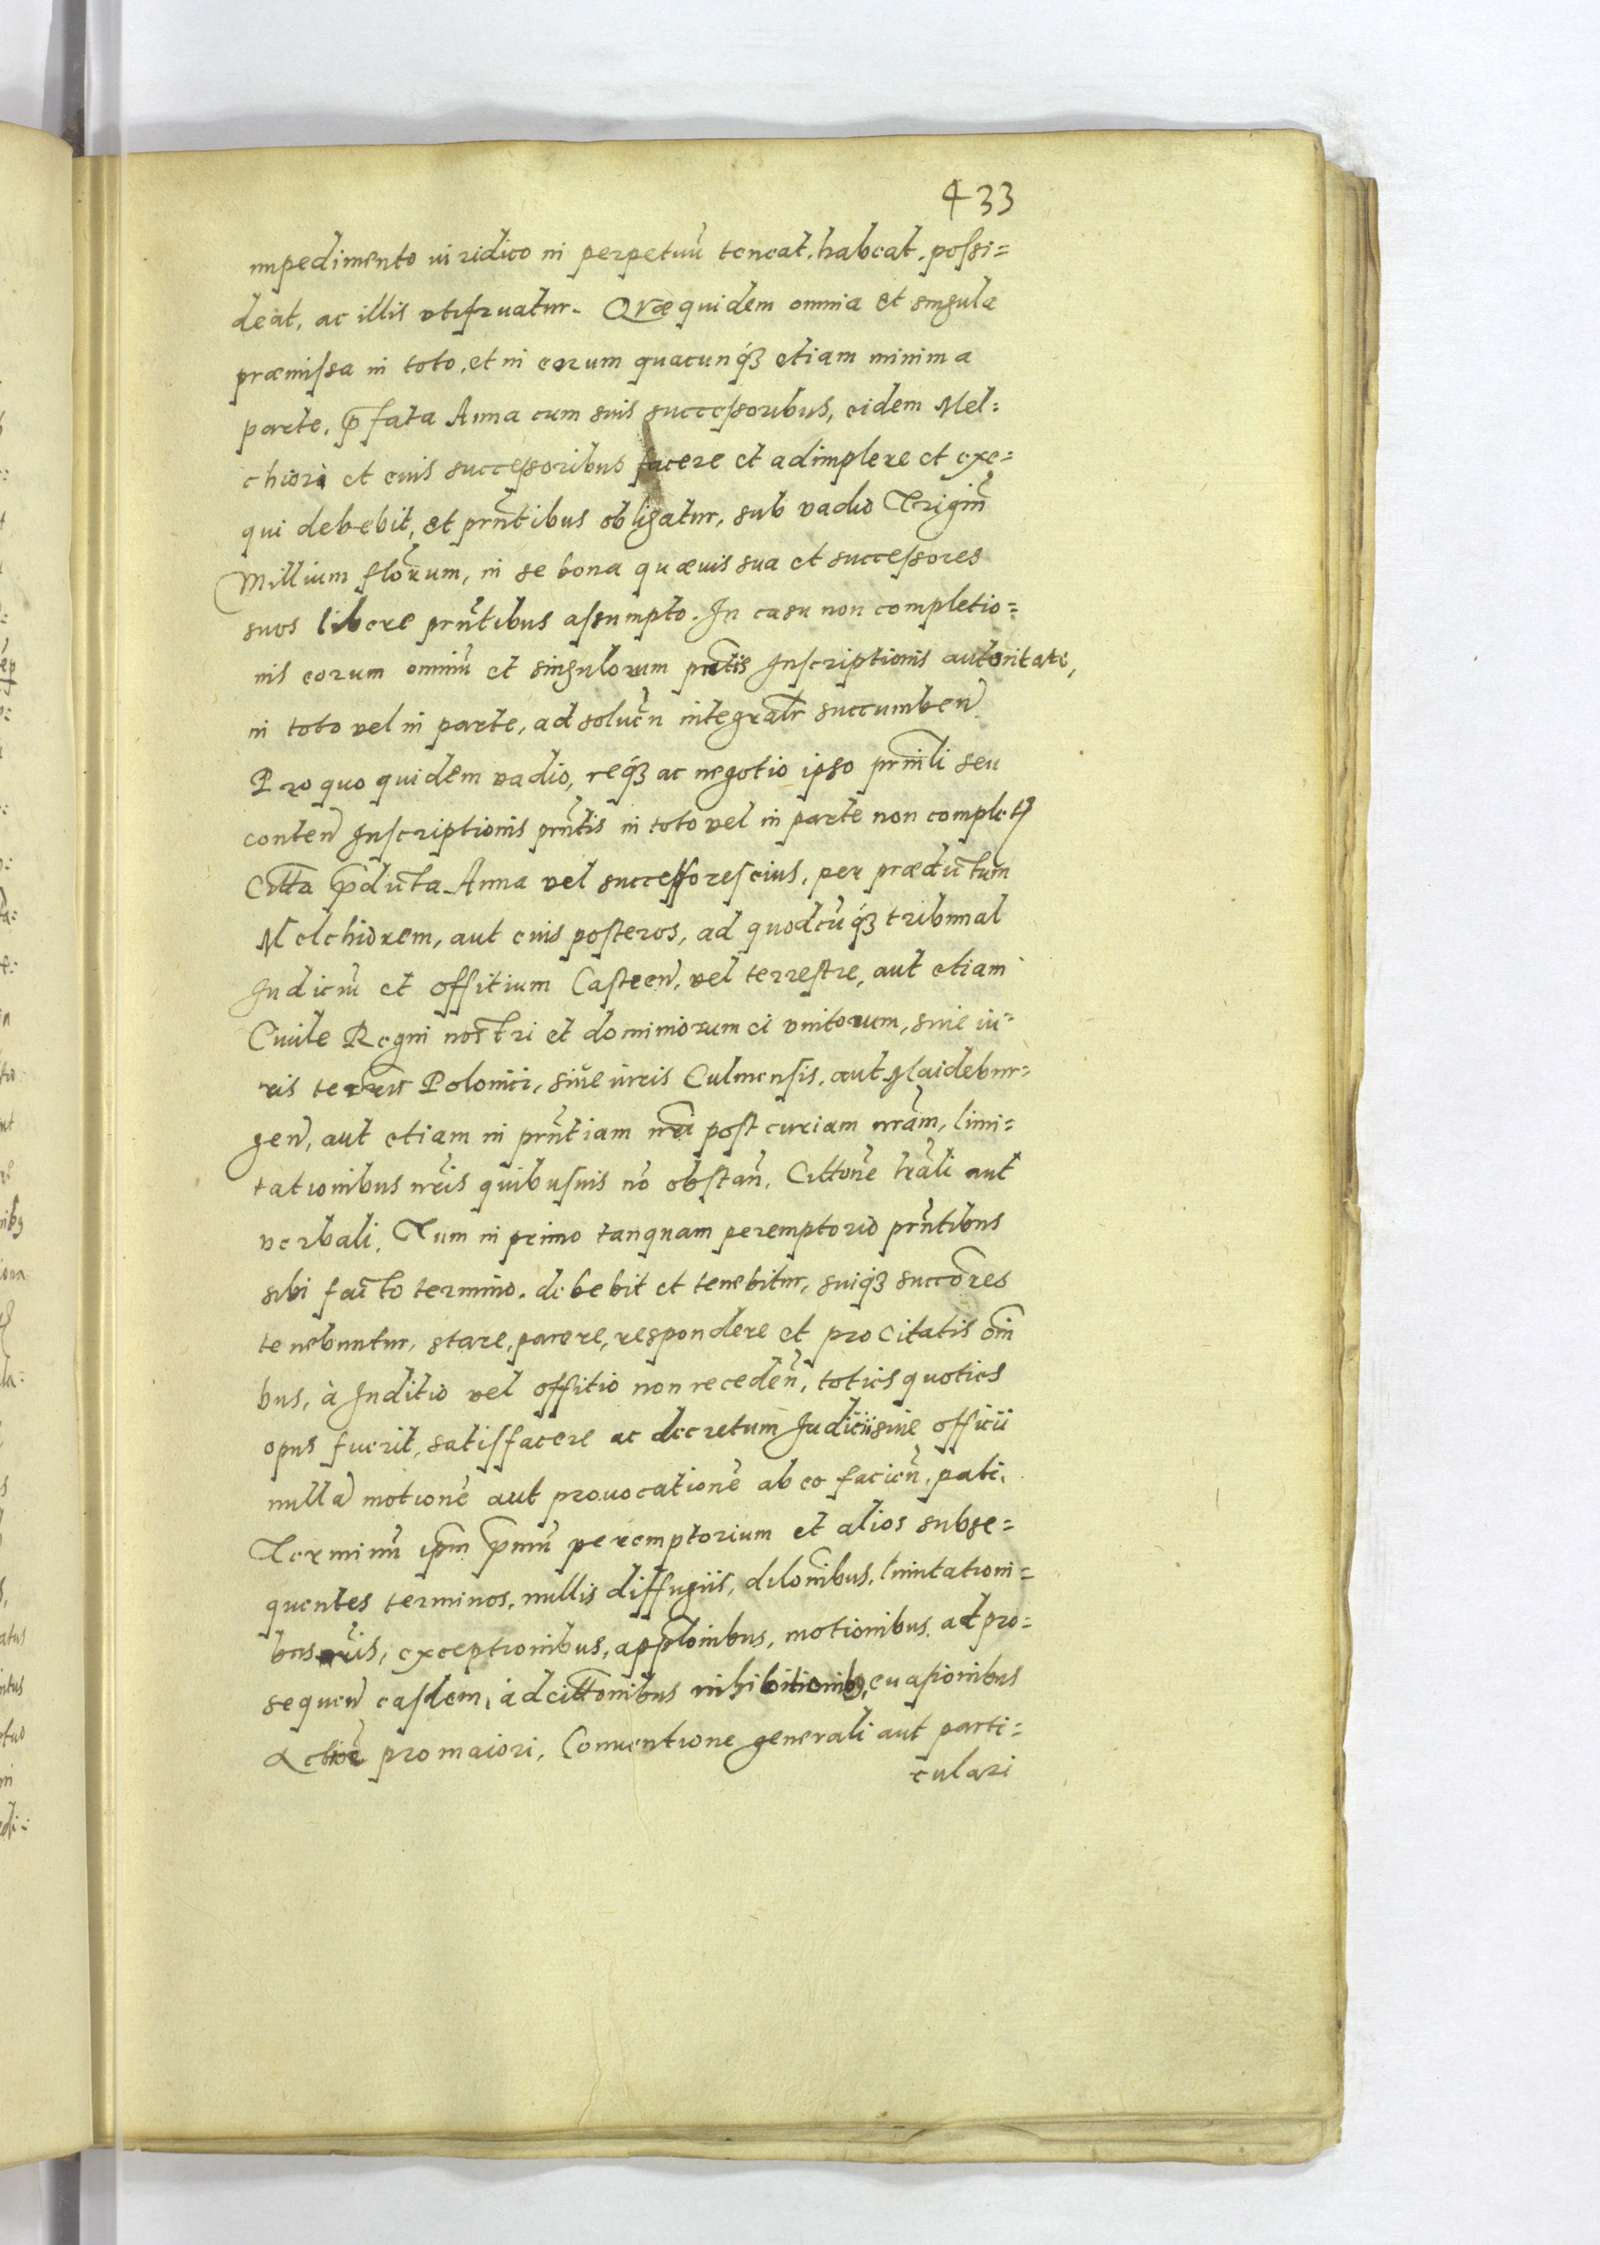 433
impedimento iuridico in perpetuũ teneat, habeat, possi=
deat, ac illis utifruatur. Quæ quidem omnia et singula
præmissa in toto, et in eorum quacunq́ꝫ etiam minima
parte, p̄fata Anna cum suis successoribus, eidem Mel=
chiori et eius successoribus facere et adimplere et exe=
qui debebit, et prñtibus obligatur, sub vadio Trigiñ
Millium florum, in se bona quævis sua et successores
suos libere prñtibus assumpto. In casu non completio=
nis eorum omniũ et singulorum prñtis Inscriptionis autoritate,
in toto vel in parte, ad soluẽn integralr succumbeñ
Pro quo quidem vadio, req́ꝫ ac negotio ipso prñcili seu
conteñ Inscriptionis prñtis in toto vel in parte non completꝭ
Citta p̄dicta Anna vel successores eius, per prædictum
Melchiorem, aut eius posteros, ad quodcũq́ꝫ tribunal
Iudiciũ et offitium Casteeñ, vel terrestre, aut etiam
Civile Regni nostri et dominiorum ei unitorum, sive iu=
ris terrãr Polonici, sive iuris Culmensis, aut Maidebur=
geñ, aut etiam in prñtiam nrã post curiam nrãm, limi=
tationibus nr̃is quibusvis nõ obstañ, Cittonẽ lrãli aut
verbali, Tum in primo tanquam peremptorio prñtibus
sibi facto termino, debebit et tenebitur, suiq́ꝫ succores
tenebuntur, stare, parere, respondere et pro citatis oĩn
bus, à Iuditio vel offitio non recedeñ, toties quoties
opus fuerit, satisfacere ac decretum Iudicii sive officii
nulla motionẽ aut provocationẽ ab eo facieñ, pati,
Terminũ ipm̃ p̄mũ peremptorium et alios subse=
quentes terminos, nullis diffugiis, dilonibus, limitationi=
bus nr̃is, exceptionibus, applonibus, motionibus, ad pro=
sequeñ easdem, adcittonibus inhibitionibꝫ, evasionibus
Actioẽ pro maiori, Conventione generali aut parti=
culari